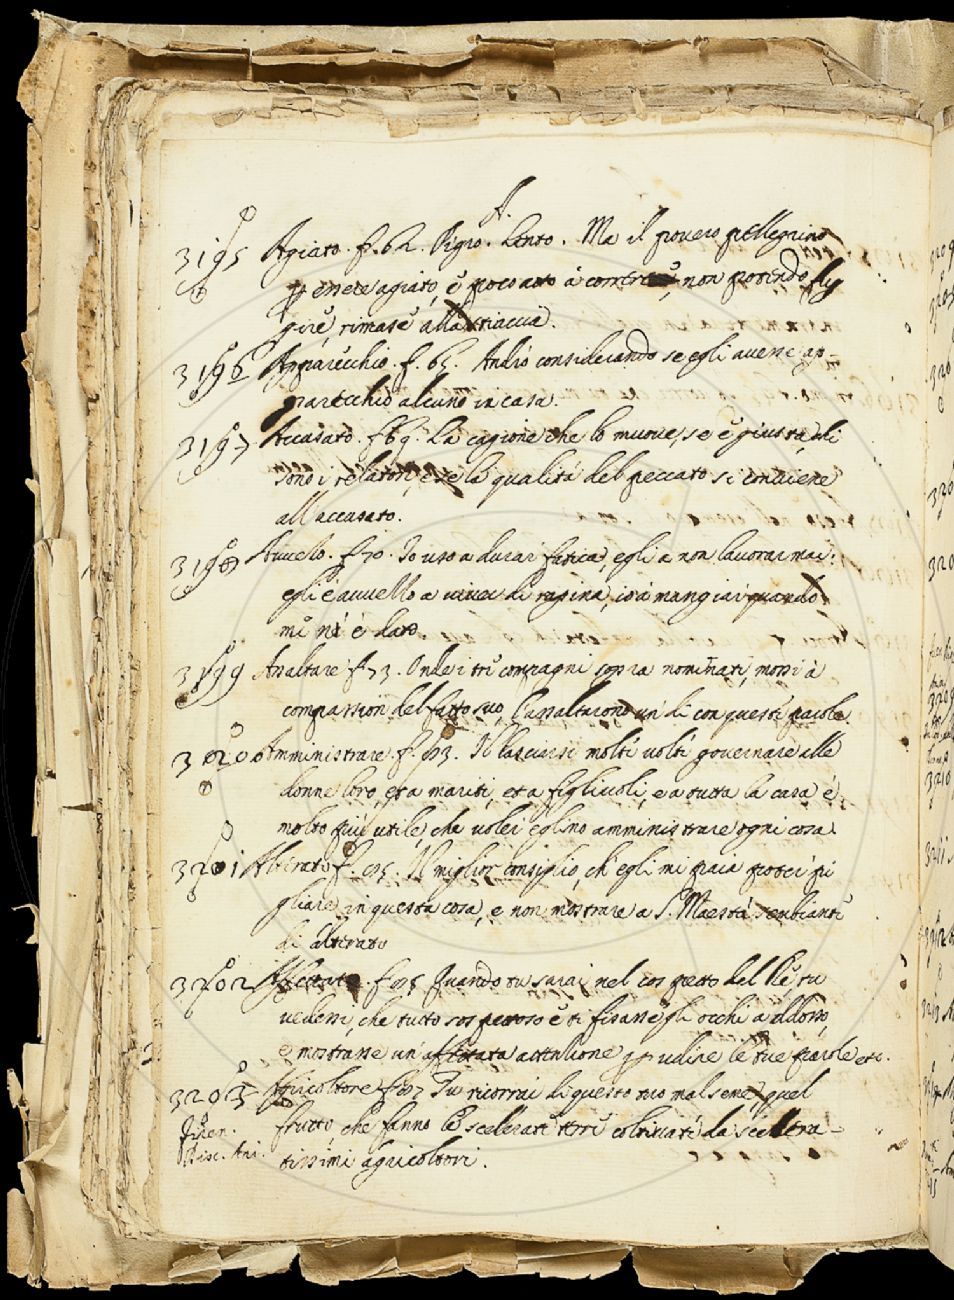 A.
3195 Agiato. f. 62. Pigro. Lento. Ma il povero pellegrino
p essere agiato, è poco atto à correre, non potendo fug
gire, rimase alla stiaccia.
3196 Apparecchio. f. 65. Andrò considerando se egli avesse ap-
parecchio alcuno in casa.
3197 Accusato. f. 69. La cagione che lo muove, se è giusta, chi
sono i relatori, e se la qualità del peccato si conviene
all'accusato.
3198 Avvezzo. f. 70. Io uso a durar fatica, egli a non lavorar mai:
egli è avvezzo a viver di rapina, io à mangiar quando
me ne è dato
3199 Assaltare f. 73. Onde i tre compagni sopra nominati, mossi à
compassion del fatto suo, l'assaltarono un dì con queste parole.
3200 Amministrare. f. 93. Il lasciarsi molte volte governare alle
donne loro, et a mariti, et a figliuoli, e a tutta la casa è
molto più utile, che voler eglino amministrare ogni cosa.
3201 Alterato f. 95. Il miglior consiglio, ch'egli mi paia poter pi
gliare in questa cosa, è non mostrare a S. Maestà sembiante
di alterato
3202 Affettata. f. 95 Quando tu sarai nel cospetto del Re tu
vederai, che tutto sospettoso e' ti fisasse gli occhi addosso,
e mostrasse un'affettata attentione p udire le tue parole etc.
3203 Agricoltore f. 97 Tu ricorrai di questo tuo mal seme, quel
Firen. frutto, che fanno le scelerate terre coltivate da scellera-
Disc. Ani. tissimi agricoltori.